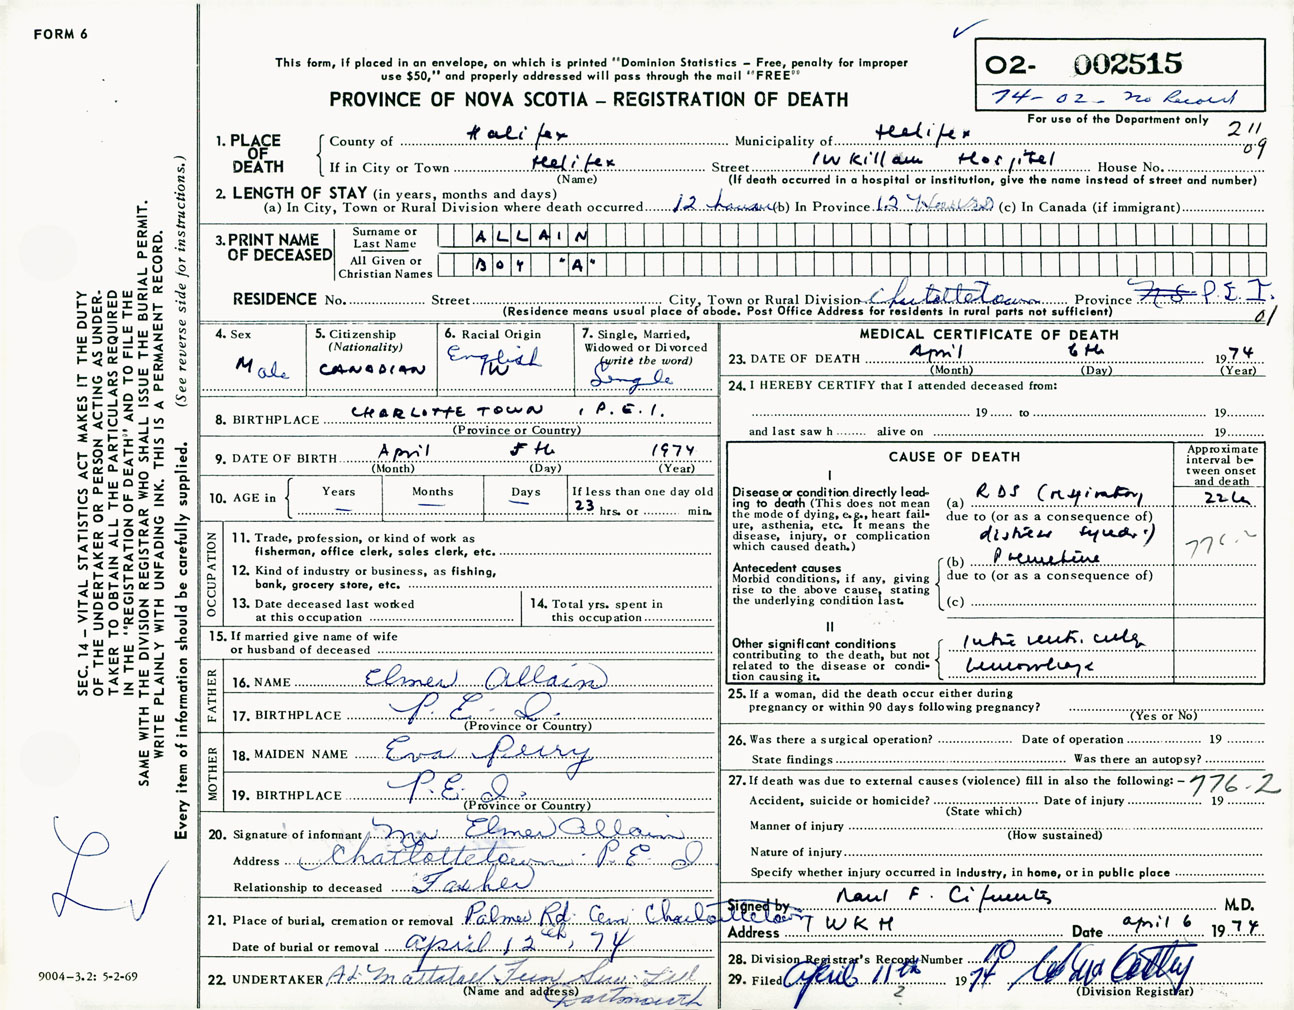 FORM 6
This form, if placed in an envelope, on which is printed "Dominion Statistics – Free, penalty for improper
use $50," and properly addressed will pass through the mail "FREE"
PROVINCE OF NOVA SCOTIA – REGISTRATION OF DEATH
02- 002515
74-02- No Record
For use of the Department only
211
09
1. PLACE OF DEATH
County of Halifax Municipality of Halifax
If in City or Town Halifax Street IWKillam Hospital House No.
(Name) (If death occurred in a hospital or institution, give the name instead of street and number)
2. LENGTH OF STAY (in years, months and days)
(a) In City, Town or Rural Division where death occurred 12 hours (b) In Province 12 Hours (c) In Canada (if immigrant)
3. PRINT NAME OF DECEASED
Surname or Last Name ALLAIN
All Given or Christian Names BOY "A"
RESIDENCE No. Street City, Town or Rural Division Charlottetown Province N.S. P.E.I.
(Residence means usual place of abode. Post Office Address for residents in rural parts not sufficient)
01
4. Sex
Male
5. Citizenship
(Nationality)
CANADIAN
6. Racial Origin
English
7. Single, Married,
Widowed or Divorced
(write the word)
Single
8. BIRTHPLACE CHARLOTTETOWN, P.E.I.
(Province or Country)
9. DATE OF BIRTH April 5th 1974
(Month) (Day) (Year)
10. AGE in
Years –
Months –
Days –
If less than one day old
23 hrs. or min.
OCCUPATION
11. Trade, profession, or kind of work as
fisherman, office clerk, sales clerk, etc.
12. Kind of industry or business, as fishing,
bank, grocery store, etc.
13. Date deceased last worked
at this occupation
14. Total yrs. spent in
this occupation
15. If married give name of wife
or husband of deceased
FATHER
16. NAME Elmer Allain
17. BIRTHPLACE P.E.I.
(Province or Country)
MOTHER
18. MAIDEN NAME Eva Perry
19. BIRTHPLACE P.E.I.
(Province or Country)
20. Signature of informant Mr Elmer Allain
Address Charlottetown P.E.I
Relationship to deceased Father
21. Place of burial, cremation or removal Palmer Rd. Cem Charlottetown
Date of burial or removal April 12th, 74
22. UNDERTAKER Mattatall Fun Ltd
(Name and address)
Dartmouth
MEDICAL CERTIFICATE OF DEATH
23. DATE OF DEATH April 6th 1974
(Month) (Day) (Year)
24. I HEREBY CERTIFY that I attended deceased from:
19 to 19
and last saw h alive on 19
CAUSE OF DEATH
Approximate
interval be-
tween onset
and death
I
Disease or condition directly lead-
ing to death (This does not mean
the mode of dying, e.g., heart fail-
ure, asthenia, etc. It means the
disease, injury, or complication
which caused death.)
(a) RDS (respiratory
due to (or as a consequence of)
distress syndr.)
22h
776-2
Antecedent causes
Morbid conditions, if any, giving
rise to the above cause, stating
the underlying condition last.
(b) Premature
due to (or as a consequence of)
(c)
II
Other significant conditions
contributing to the death, but not
related to the disease or condi-
tion causing it.
hemorrhage
25. If a woman, did the death occur either during
pregnancy or within 90 days following pregnancy?
(Yes or No)
26. Was there a surgical operation? Date of operation 19
State findings Was there an autopsy?
27. If death was due to external causes (violence) fill in also the following: – 776.2
Accident, suicide or homicide? Date of injury 19
(State which)
Manner of injury
(How sustained)
Nature of injury
Specify whether injury occurred in industry, in home, or in public place
Signed by Raul F. Cifuentes M.D.
Address IWKH Date April 6 1974
28. Division Registrar's Record Number
29. Filed April 11th 1974
2
(Division Registrar)
SEC. 14 – VITAL STATISTICS ACT MAKES IT THE DUTY
OF THE UNDERTAKER OR PERSON ACTING AS UNDER-
TAKER TO OBTAIN ALL THE PARTICULARS REQUIRED
IN THE "REGISTRATION OF DEATH" AND TO FILE THE
SAME WITH THE DIVISION REGISTRAR WHO SHALL ISSUE THE BURIAL PERMIT.
WRITE PLAINLY WITH UNFADING INK. THIS IS A PERMANENT RECORD.
Every item of information should be carefully supplied. (See reverse side for instructions.)
9004-3.2: 5-2-69